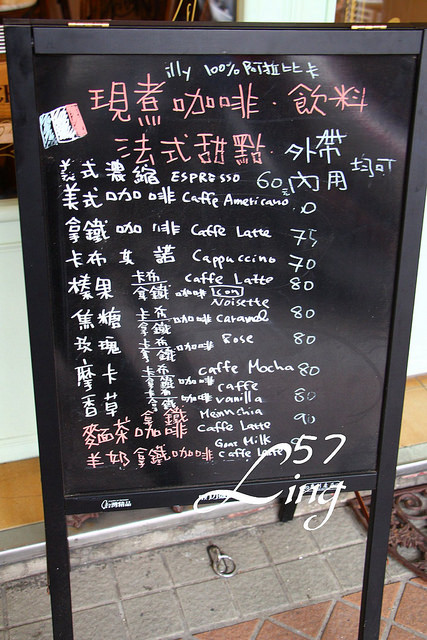 illy 100% 阿拉比卡
現煮咖啡·飲料
法式甜點 外帶
義式濃縮 ESPRESSO 60元 內用 均可
美式咖啡 Caffe Americano
拿鐵咖啡 Caffe Latte 75
卡布 諾 Cappuccino 70
榛果 卡布 拿鐵 咖啡 Caffe Latte Noisette 80
焦糖 卡布 拿鐵 咖啡 Caramel 80
玫瑰 卡布 拿鐵 咖啡 Rose 80
摩卡 卡布 拿鐵 咖啡 Caffe Mocha 80
香草 拿鐵 咖啡 caffe vanilla 80
拿鐵 咖啡 Caffe Latte 90
羊奶拿鐵咖啡 Goat Milk Caffe Latte
57
Ling
台灣精品